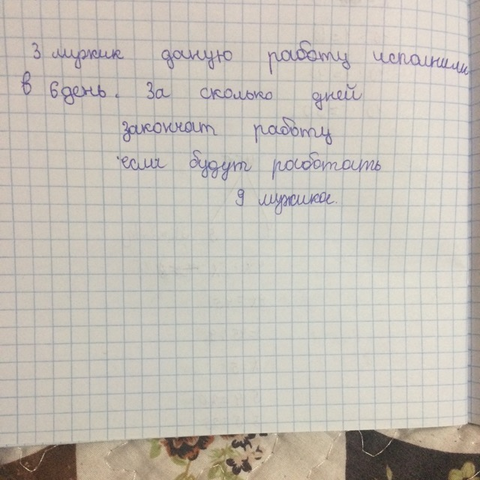 3 мужик даную работу исполнили
в 6 день. За сколько дней
закончат работу
если будут работать
9 мужиков.